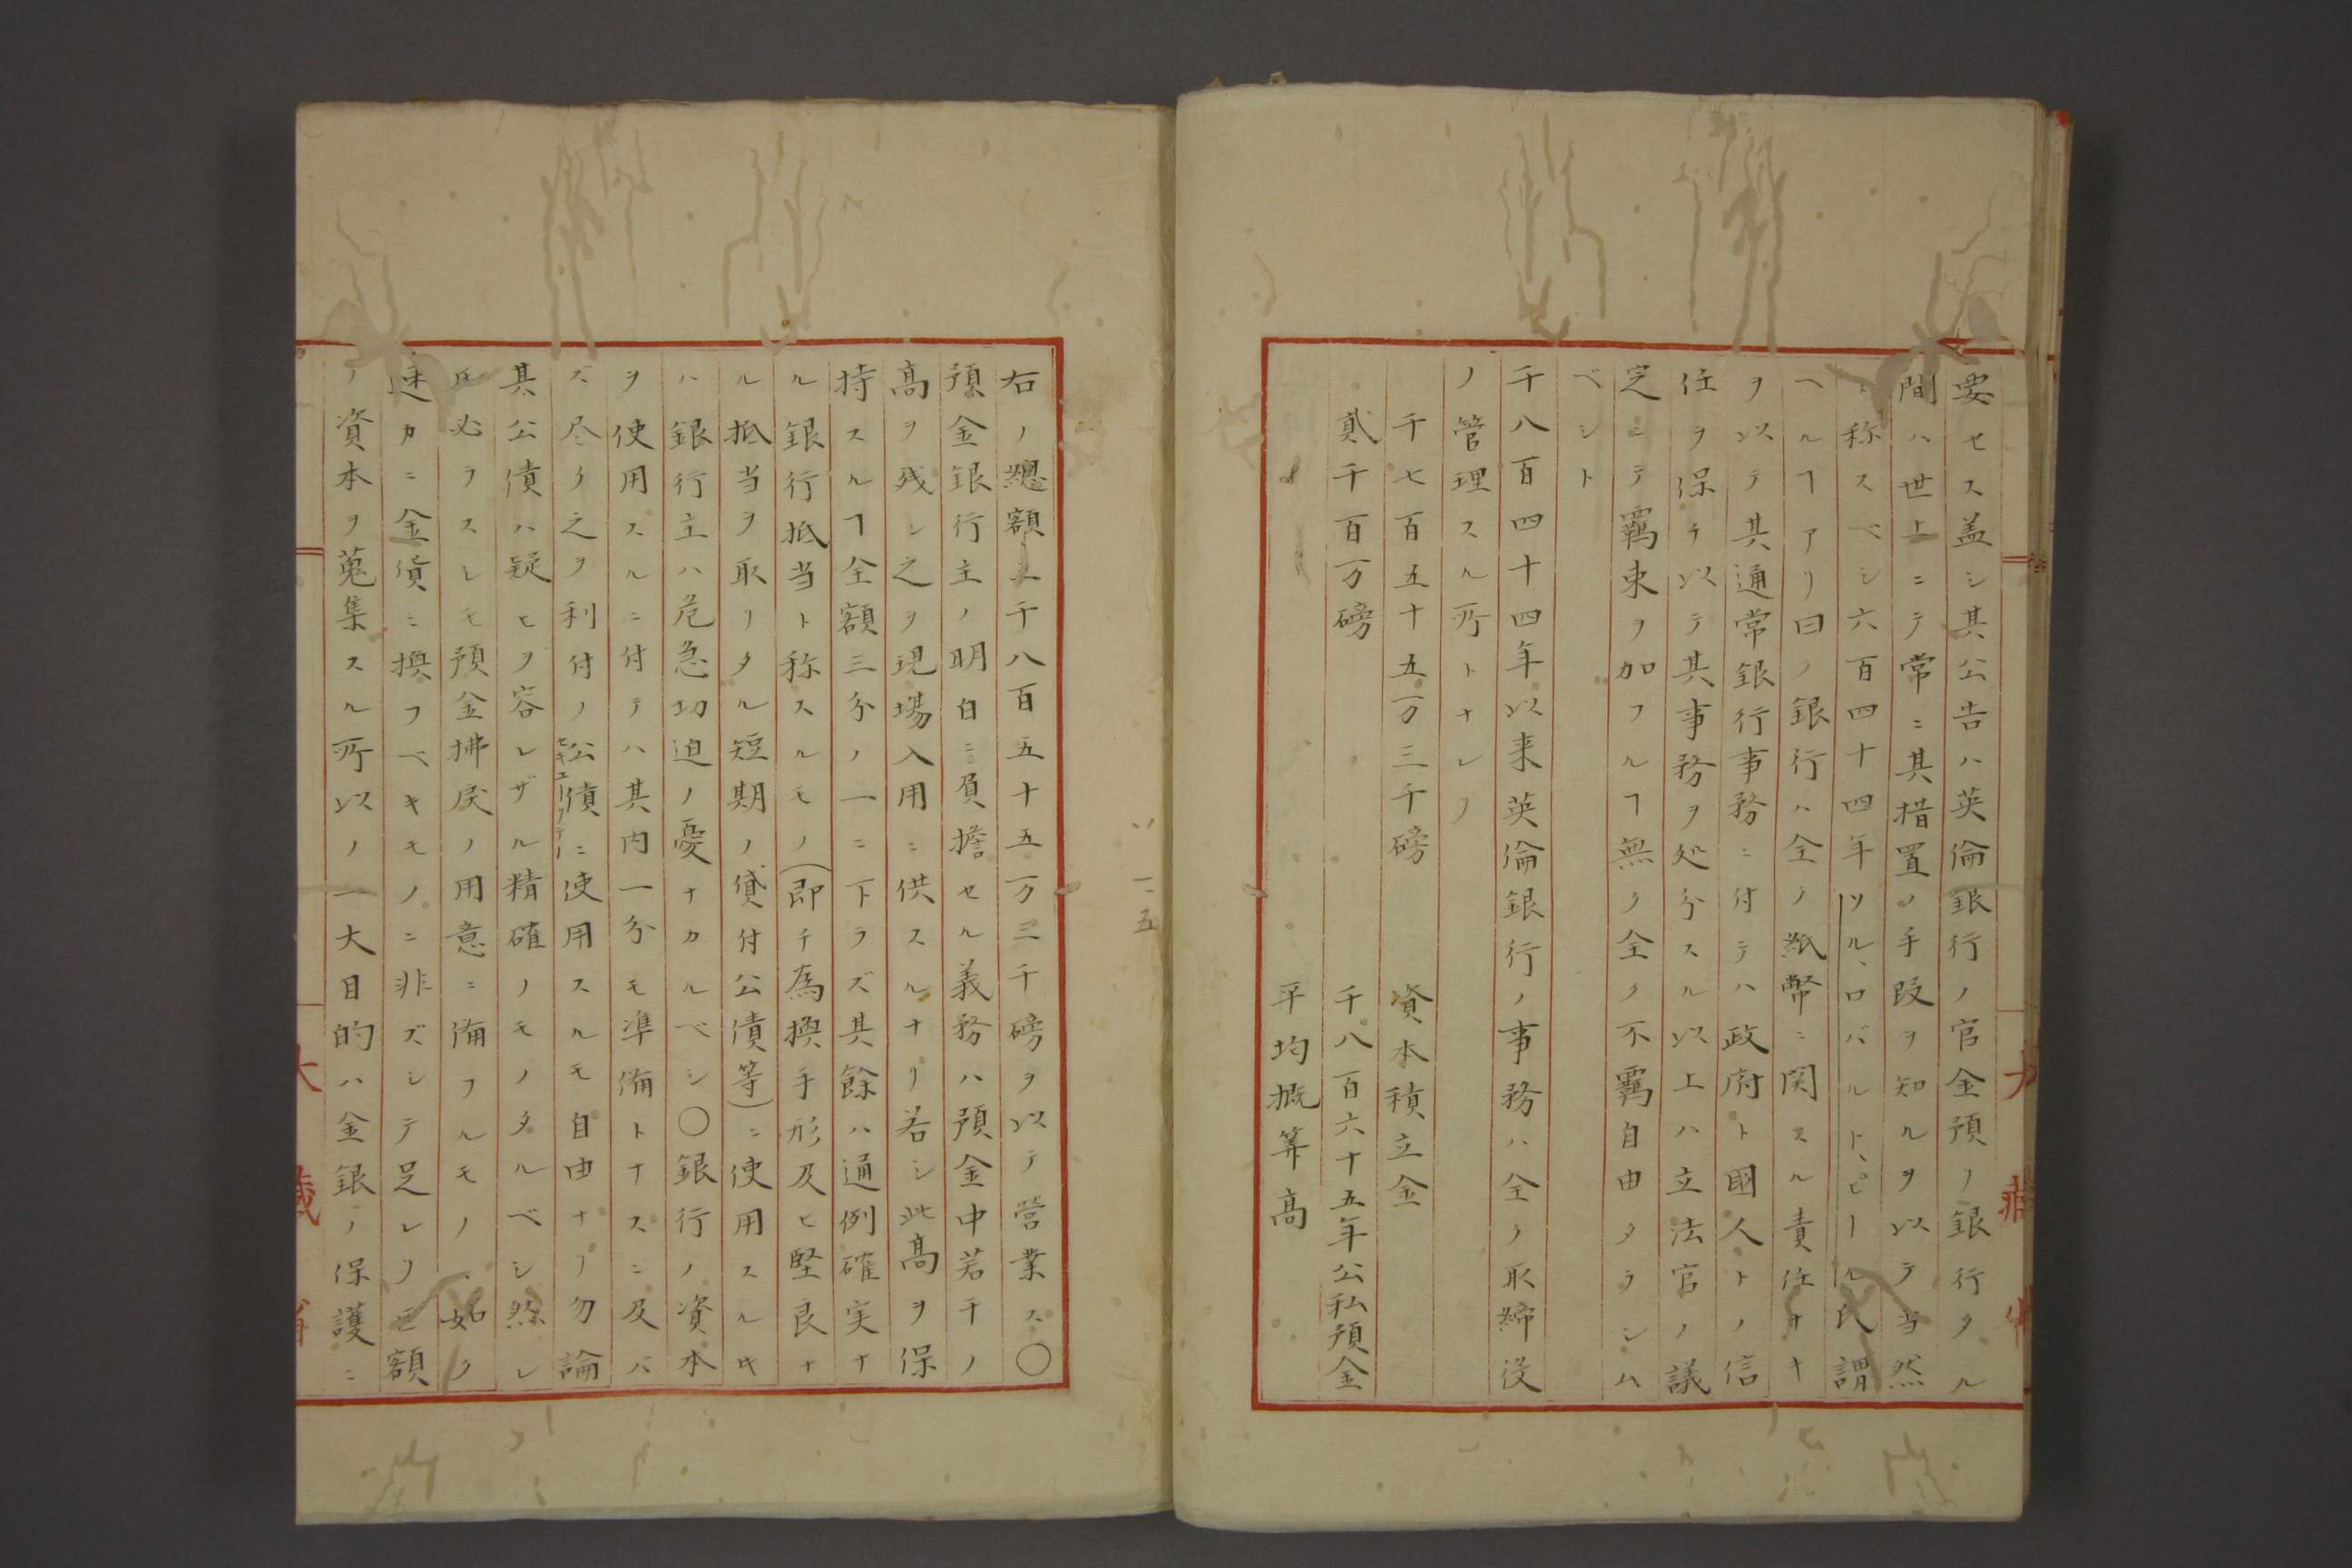 要セス盖シ其公告ハ英倫銀行ノ官金預ノ銀行タル
間ハ世上ニテ常ニ其措置ノ手段ヲ知ルヲ以テ当然
ト称スベシ六百四十四年ソル、ロバルト、ピール氏謂
ヘルヿアリ曰ク銀行ハ全ク紙幣ニ関スル責任ナキ
ヲ以テ其通常銀行事務ニ付テハ政府ト國人トノ信
任ヲ保チ以テ其事務ヲ処分スル以上ハ立法官ノ議
定ニテ羈束ヲ加フルヿ無ク全ク不羈自由タラシム
ベシト
千八百四十四年以来英倫銀行ノ事務ハ全ク取締役
ノ管理スル所トナレリ
千七百五十五万三千磅 資本積立金
貳千百万磅 千八百六十五年公私預金
平均概算高
右ノ總額三千八百五十五万三千磅ヲ以テ營業ス〇
預金銀行主ノ明白ニ負擔セル義務ハ預金中若干ノ
高ヲ残シ之ヲ現場入用ニ供スルナリ若シ此高ヲ保
持スルヿ全額三分ノ一ニ下ラズ其餘ハ通例確実ナ
ル銀行抵当ト称スルモノ(即チ為換手形及ヒ堅良ナ
ル抵当ヲ取リタル短期ノ貸付公債等)ニ使用スルキ
ハ銀行主ハ危急切迫ノ憂ナカルベシ〇銀行ノ資本
ヲ使用スルニ付テハ其内一分モ準備トナスニ及バ
ズ尽ク之ヲ利付ノ公債ニ使用スルモ自由ナリ勿論
セキユーリテー
其公債ハ疑ヒヲ容レザル精確ノモノタルベシ然レ
𪜈必ラスシモ預金拂戻ノ用意ニ備フルモノヽ如ク
速カニ金貨ニ換フベキモノニ非ズシテ足レリ巨額
ノ資本ヲ蒐集スル所以ノ一大目的ハ金銀ノ保護ニ
一五
大藏省